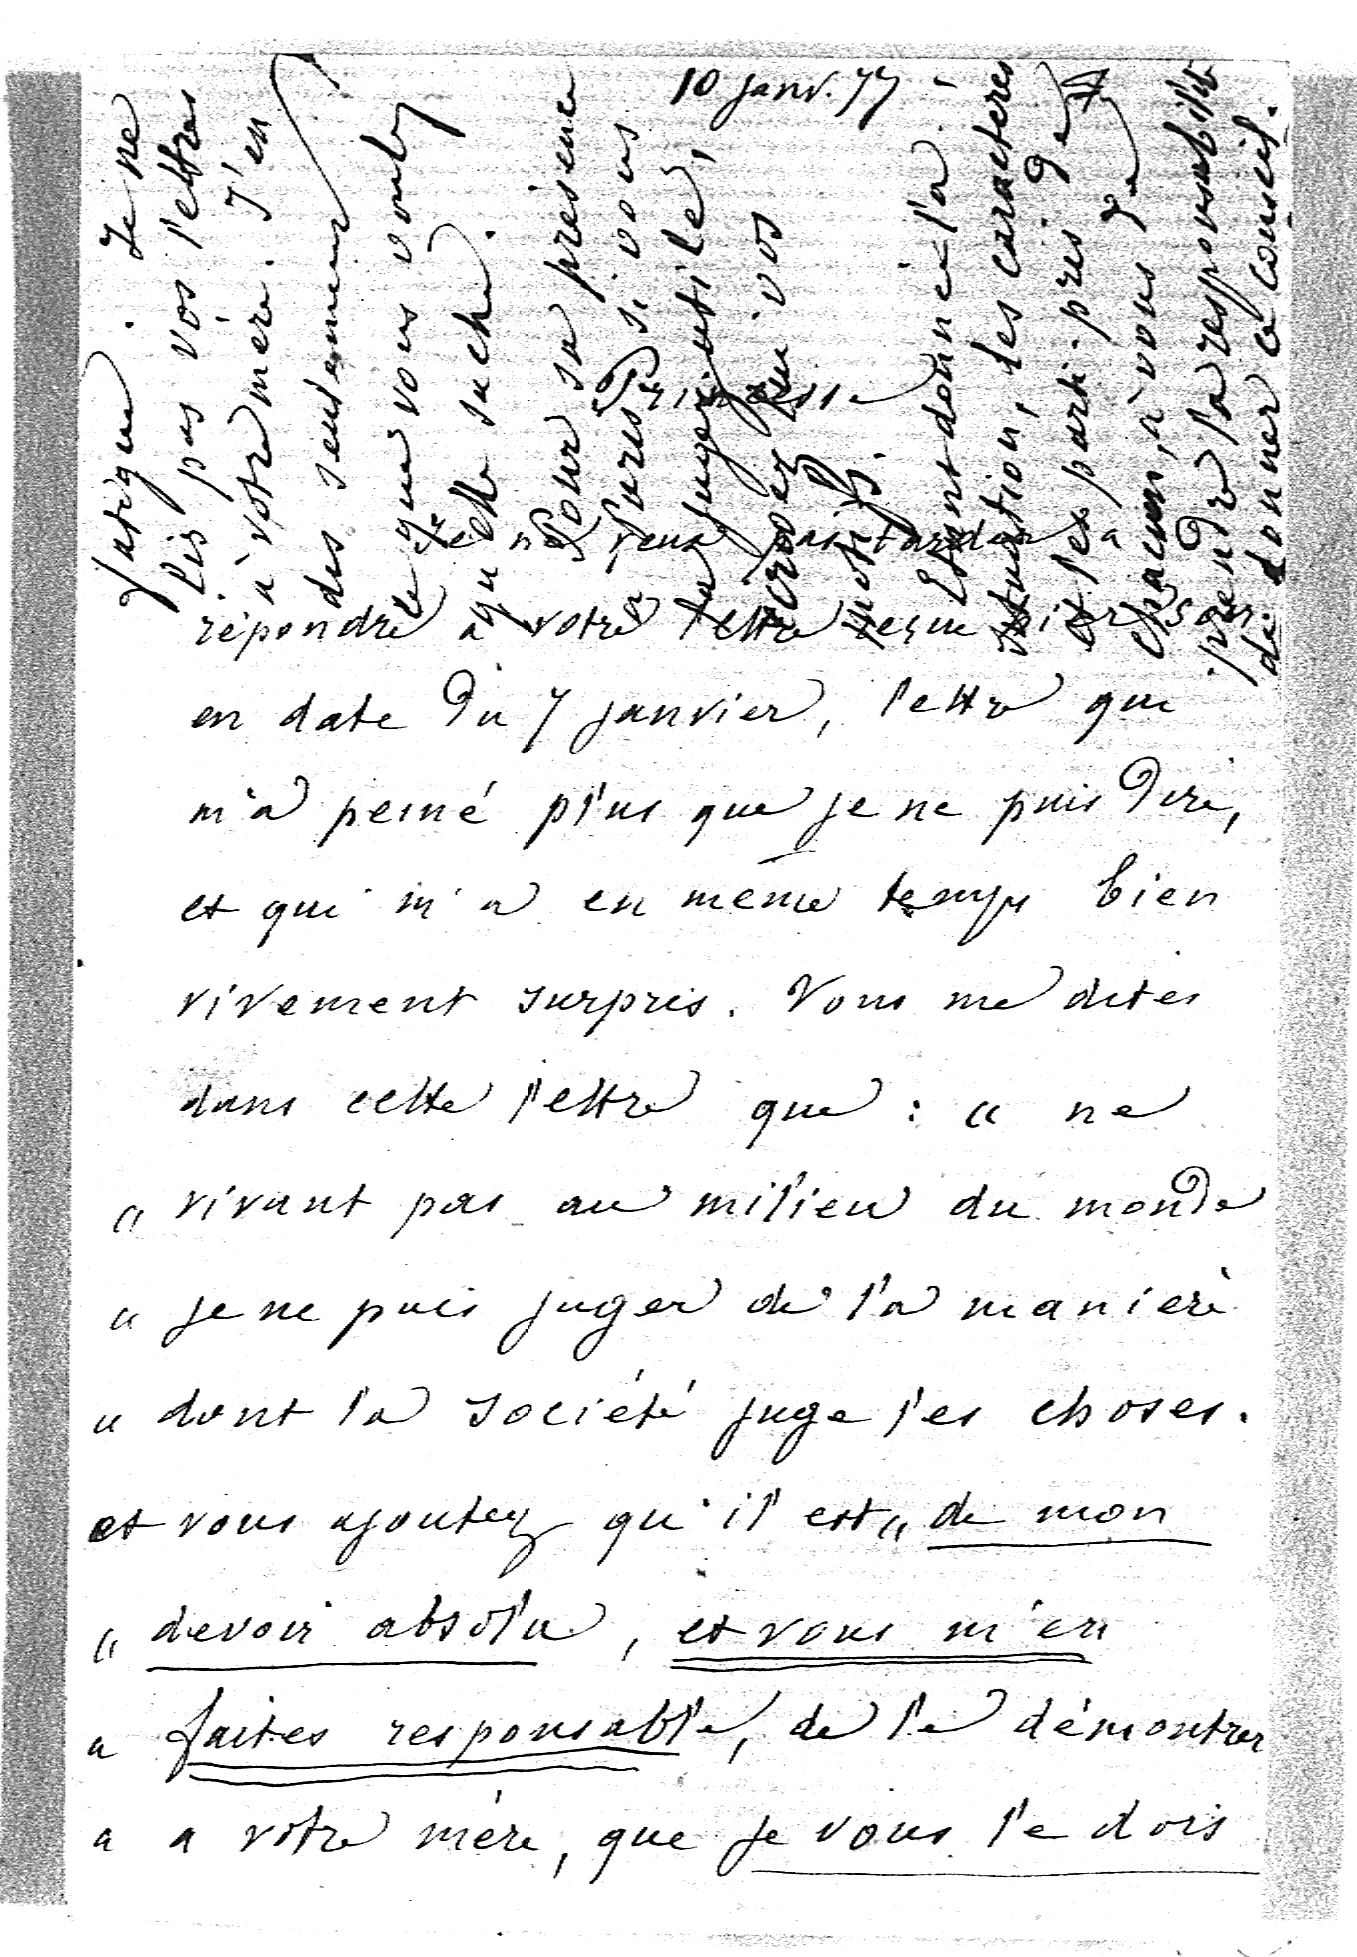 10 janv. 77
Princesse
Je ne veux pas tarder à
répondre à votre lettre reçue hier soir
en date du 7 janvier, lettre qui
m'a peiné plus que je ne puis dire,
et qui m'a en même temps bien
vivement surpris. Vous me dites
dans cette lettre que : « ne
« vivant pas au milieu du monde
« je ne puis juger de la manière
« dont la société juge les choses.
et vous ajoutez qu'il est « de mon
« devoir absolu, et vous m'en
« faites responsable, de le démontrer
« a votre mère, que je vous le dois
fatigue. Je ne
lis pas vos lettres
à votre mère. J'en
dis seulement
ce que vous voulez
qu'elle sache.
Pour sa présence
à Paris si vous
la jugez utile,
vos
motifs.
Etant donné la
situation, les caractères
et les parti-pris de
chacun, à vous de
prendre la responsabilité
de donner ce conseil.